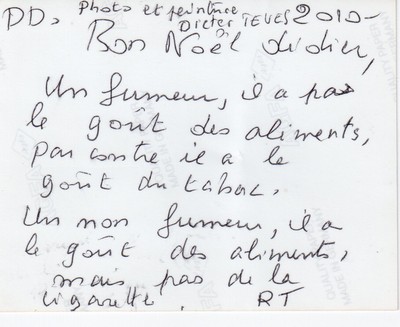 DD, Photo et peinture
Dieter TEVES 2010-
Bon Noël didier,
Un fumeur, il a pas
le goût des aliments,
par contre il a le
goût du tabac.
Un non fumeur, il a
le goût des aliments,
mais pas de la
cigarette. RT